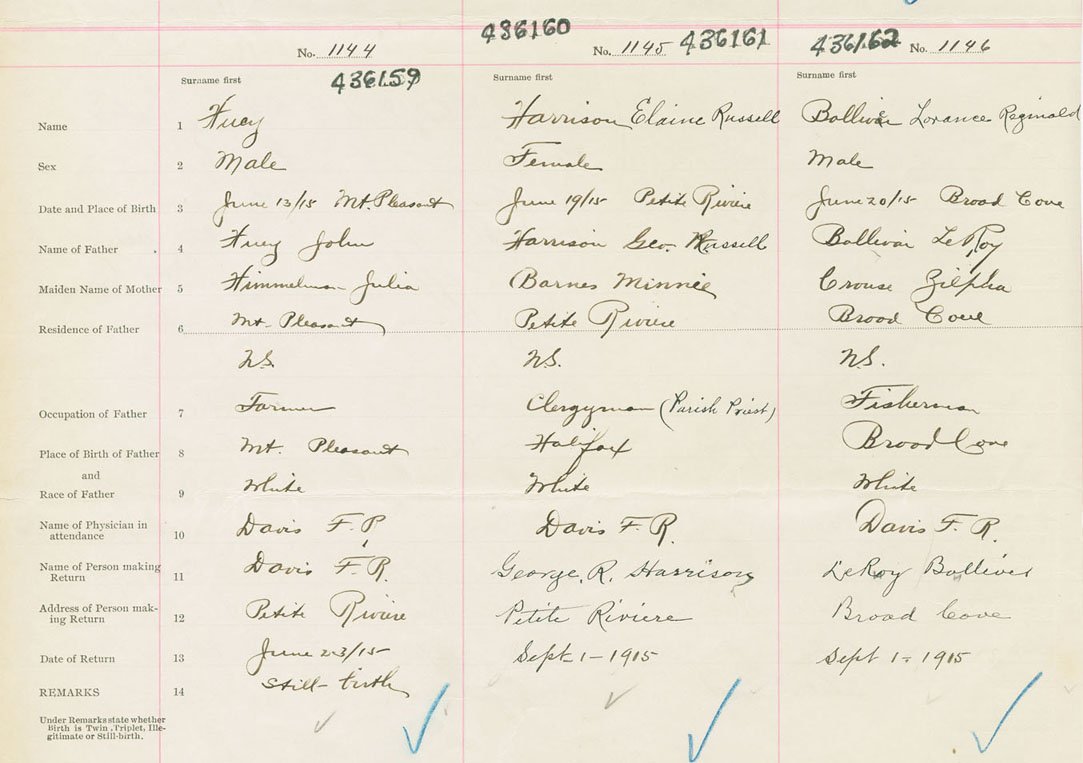 486160
No. 1144 No. 1145 436161 436162 No. 1146
Surname first 436159 Surname first Surname first
Name 1 Huey Harrison Elaine Russell Bolliver Lorance Reginald
Sex 2 Male Female Male
Date and Place of Birth 3 June 13/15 Mt. Pleasant June 19/15 Petite Riviere June 20/15 Broad Cove
Name of Father 4 Huey John Harrison Geo. Russell Bolliver LeRoy
Maiden Name of Mother 5 Himmelman Julia Barnes Minnie Crouse Zilpha
Residence of Father 6 Mt. Pleasant Petite Riviere Broad Cove
N.S. N.S. N.S.
Occupation of Father 7 Farmer Clergyman (Parish Priest) Fisherman
Place of Birth of Father 8 Mt. Pleasant Halifax Broad Cove
and
Race of Father 9 White White White
Name of Physician in
attendance 10 Davis F. R. Davis F. R. Davis F. R.
Name of Person making
Return 11 Davis F. R. George. R. Harrison LeRoy Bolliver
Address of Person mak-
ing Return 12 Petite Riviere Petite Riviere Broad Cove
Date of Return 13 June 23/15 Sept 1 - 1915 Sept 1 - 1915
REMARKS 14 Still-birth
Under Remarks state whether
Birth is Twin, Triplet, Ille-
gitimate or Still-birth.